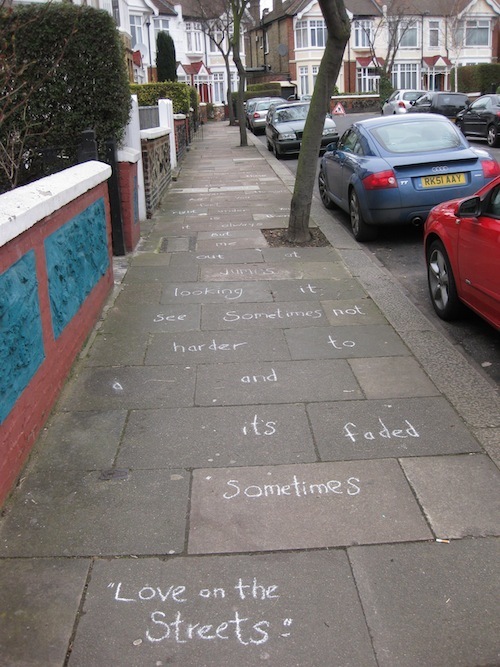 "Love on the
Streets"
Sometimes
it's faded
a and
harder to
see Sometimes not
looking it
JUMPS
out at
me
RK51 AAY